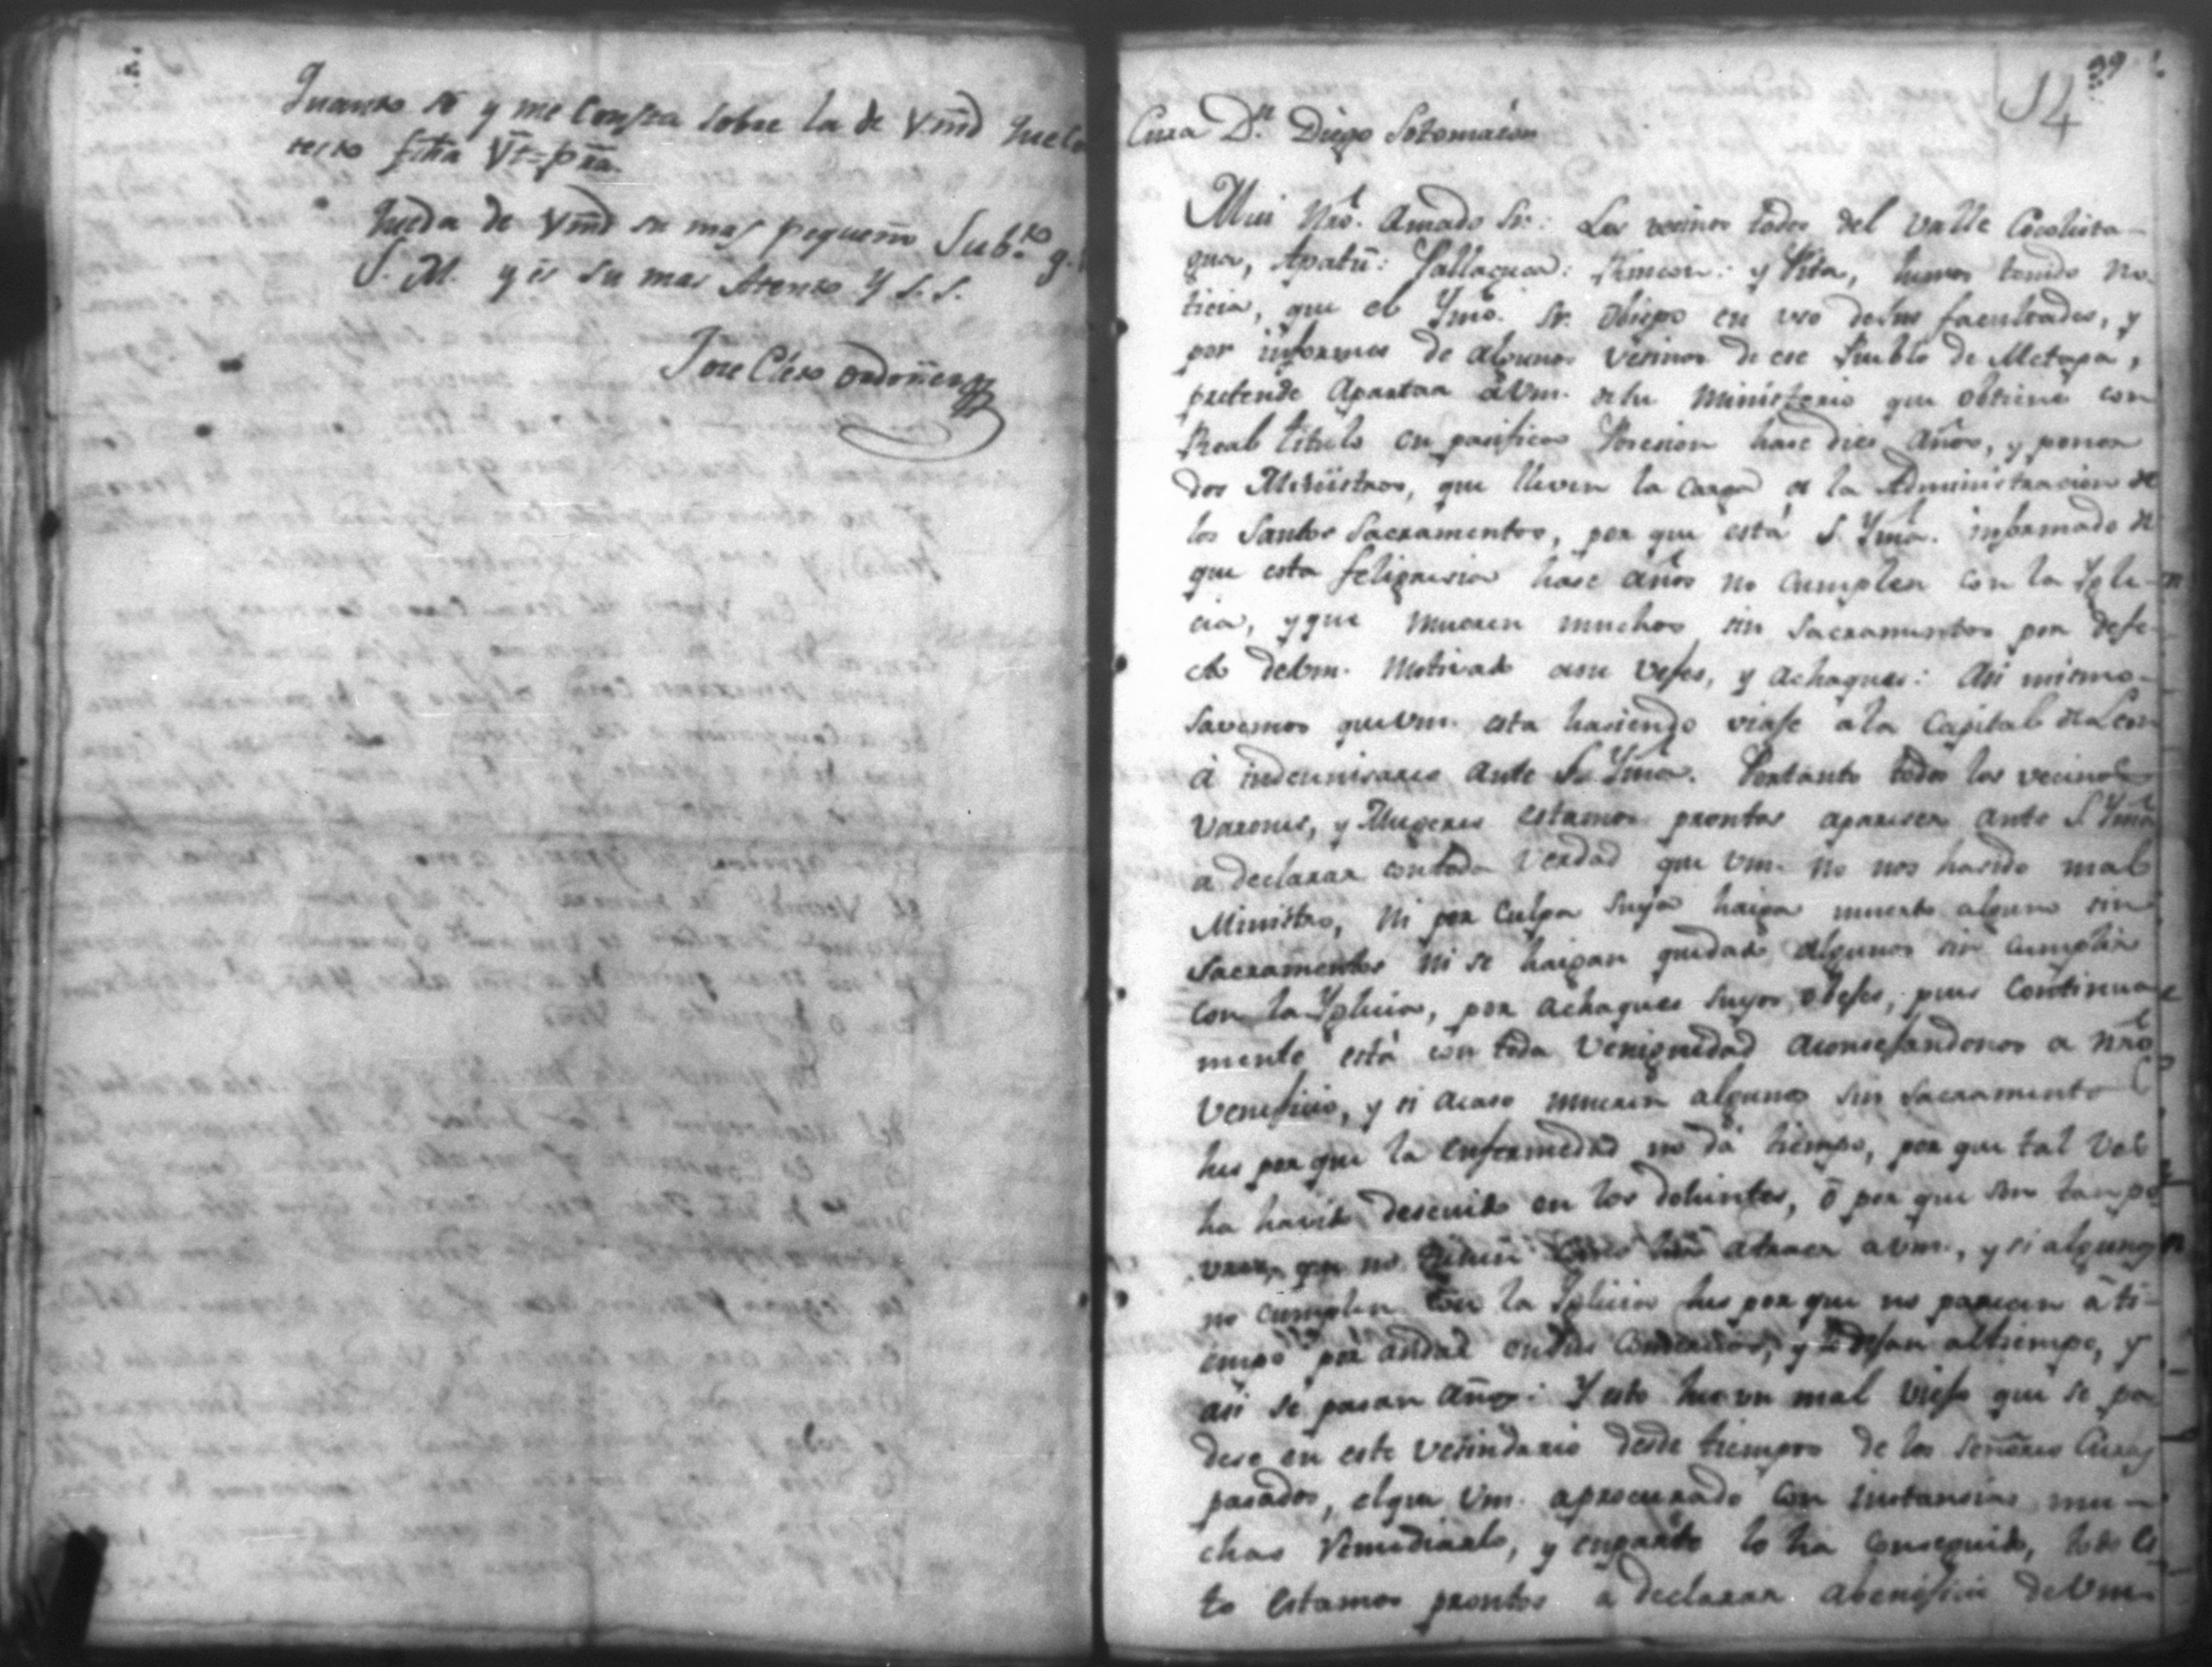 Quanto se y me Consta sobre la de Vmd
testo fcha Vt
Queda de Vmd su mas pequeño Subto q.
S. M. y es su mas Atento Y S. S.
Jose Ordoñes
39
54
Cura Dn. Diego Sotomaior
Mui Nro. Amado Sr.: Los vecinos todos del Valle
gua, y Pita, hemos tenido no-
ticia, que el Ymo. Sr. Obispo en uso de sus facultades, y
por informes de algunos Vesinos de ese Pueblo de Metapa,
pretende Apartar à Vm. de su Ministerio que obtiene con
Real titulo en pasifica Posesion hase dies Años, y poner
dos Ministros, que lleven la carga de la Administracion de
los Santos Sacramentos, por que està S. Yma. informado de
que esta feligresia hase años no cumplen con la Ygle-
cia, y que mueren muchos sin Sacramentos por defe-
cto de Vm. Motivado a su Vejes, y Achaques: Asi mismo
Savemos que Vm. esta hasiendo viaje a la Capital de Leon
à indemnisarse Ante Su Yma. Portanto todos los vecinos
Varones, y Mugeres estamos prontos apareser ante S. Yma
a declarar con toda Verdad que Vm. no nos ha sido mal
Ministro, Ni por Culpa Suya haiga muerto alguno sin
Sacramentos Ni se haigan quedado Algunos sin cumplir
con la Yglecia, por Achaques suyos o Vejes, pues Continua
mente està con toda Venignidad Aconsejandonos a Nro
Veneficio, y si Acaso mueren algunos sin Sacramento
hes por que la enfermedad no dà tiempo, por que tal Vez
ha havido descuido en los dolientes, ò por que son tan po
vres, que no tienen atraer a Vm., y si algunos
no cumplen con la Yglecia hes por que no parecen à ti-
empo por andar en sus Comercios, y dejan al tiempo, y
asi se pasan Años: Y esto hes un mal Viejo que se pa
dese en este Vesindario desde tiempos de los Señores Curas
pasados, el que Vm. a procurado con instansias mu-
chas Remediarlo, y en parte lo ha Conseguido, todo es
to estamos prontos a declarar a beneficio de Vm.